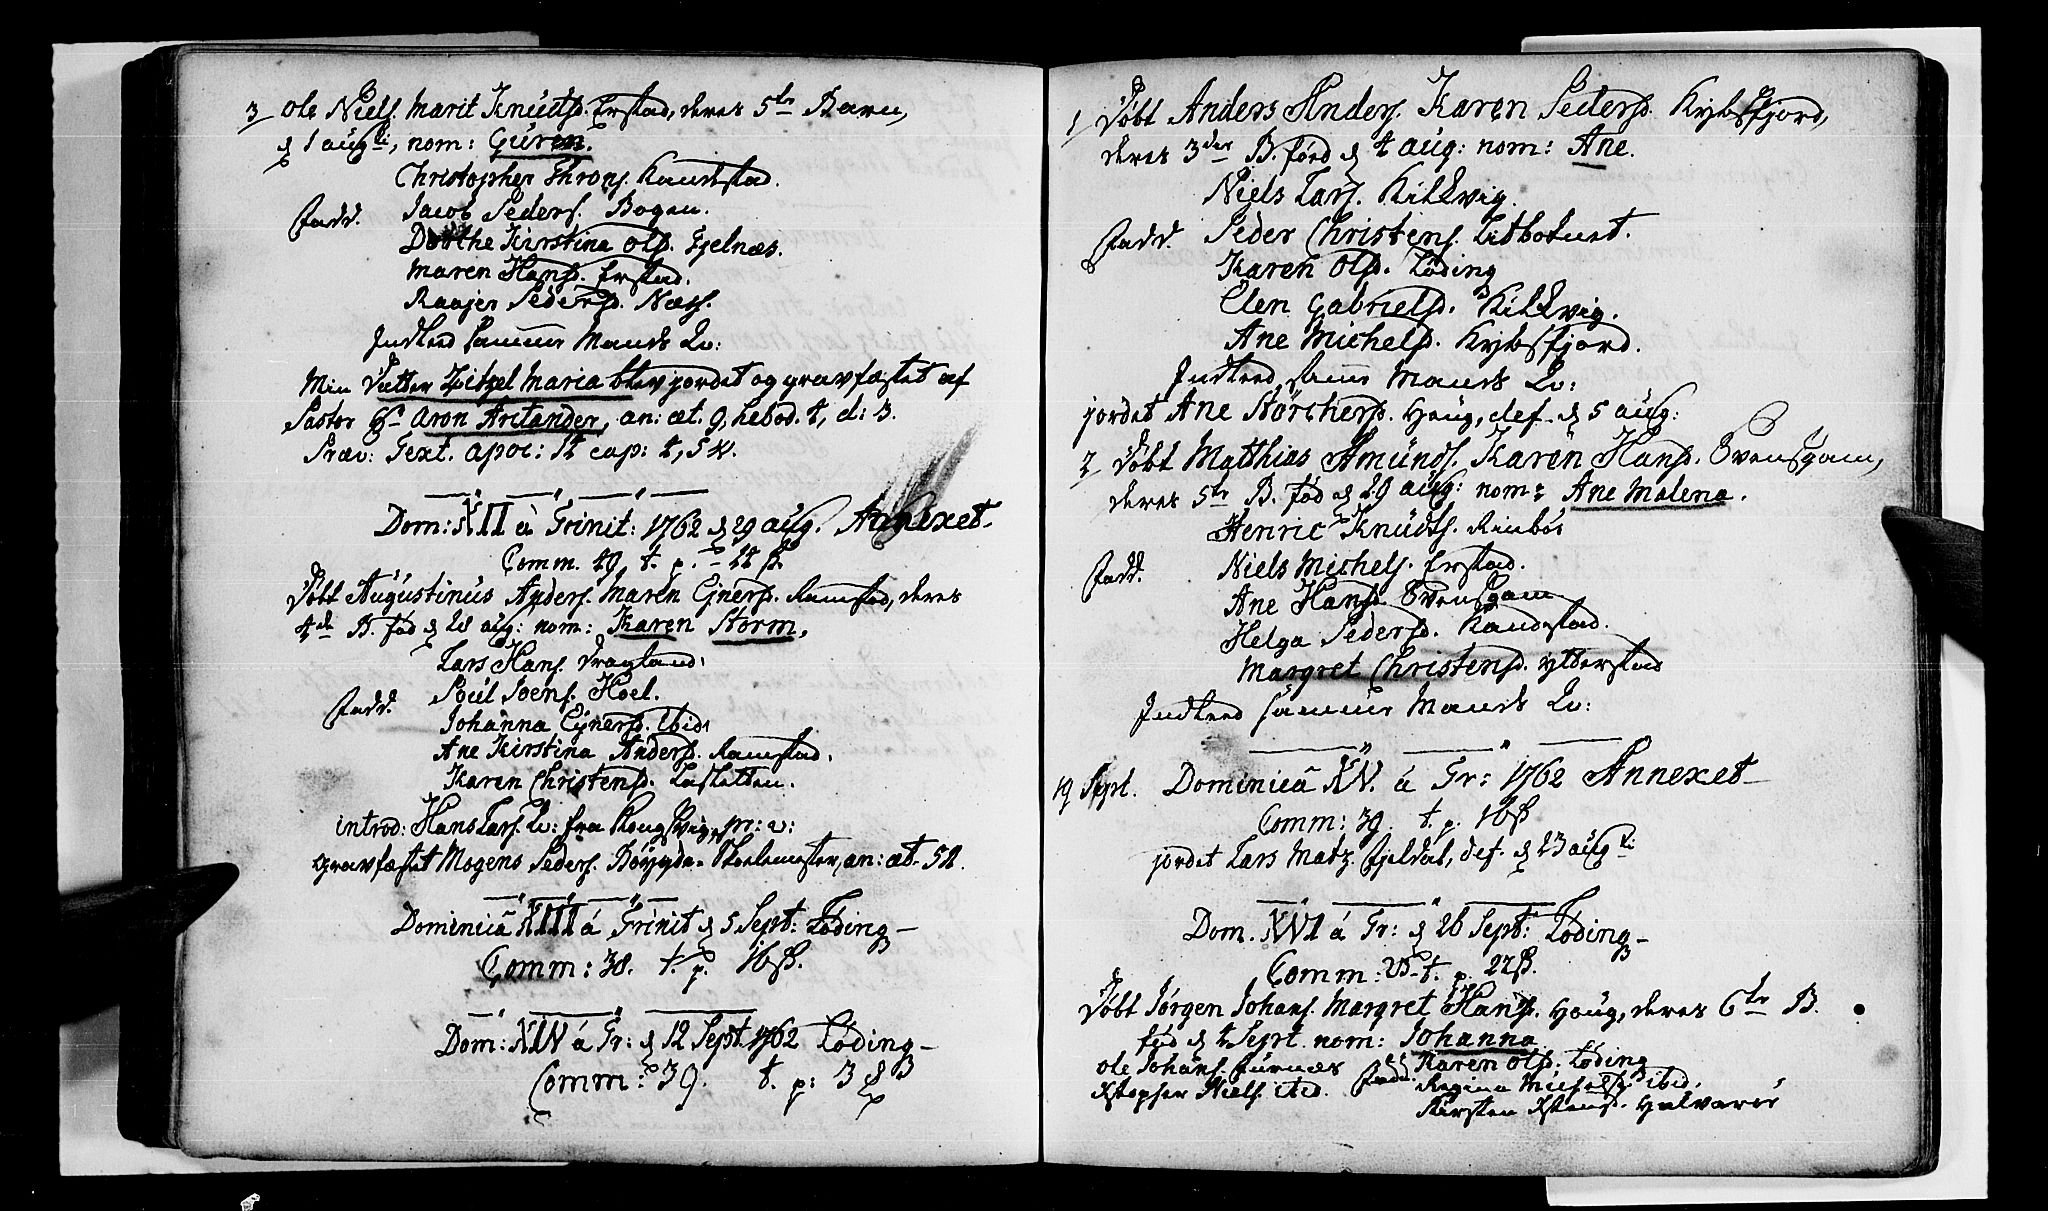 3 Ole Niels. Marit Knudsd. Erstad, deres 5te Barn,
d 1 augti, nom: Guren.
Christopher Throns. Kandestad.
Fadd. Jacob Peders. Bogen.
Dorthe Kirstina Olsd. Fjelnæs.
Maren Hansd. Erstad.
Raagen Pedersd. Næss.
Indleed samme Mands Qv:
Min Datter Zitzel Maria blev jordet og gravfæstet af
Pastor Hr Aron Arctander, an: æt. 9, hebod. 4, d: 3.
Præv: Text. apoc: 14 cap: 4, 5 v.
Dom: XII à Trinit: 1762 d 29 aug. Annexet.
Comm. 49, t. p. - 14 ß.
Døbt Augustinus Anders. Maren Ejnersd. Ramstad, deres
4de B. fød d 28 aug: nom: Karen Storm,
Lars Hans. Dragland:
Fadd. Poul Joens. Hoel.
Johanna Ejnersd. ibid:
Ane Kirstina Andersd. Ramstad.
Karen Christensd. Lasketten.
introd: Hans Lars. Qv: fra Kongsvig, pr: v:
Gravfæstet Mogens Peders. Bøygde-Skolemester, an: æt. 52.
Dominicâ XIII á Trinit d 5 Sept: Løding
Comm: 38. t. p. 16 ß.
Dom: XIV á Tr: d 12 Sept 1762 Løding
Comm: 39. t. p: 3 ß
1 Døbt Anders Anders. Karen Pedersd. Kybsfjord,
deres 3die B. fød d 4 aug: nom: Ane.
Niels Lars. Kilkvig.
Fadd. Peder Christens. Litbotnet.
Karen Olsd. Løding
Elen Gabrielsd. Kilkvig.
Ane Michelsd. Kybsfjord.
Indleed samme Mands Qv:
jordet Ane Störchersd. Houg, def. d 5 aug:
2 Døbt Matthias Amunds. Karen Hansd. Svensgam,
deres 5te B. fød d 29 aug: nom: Ane Malena.
Henric Knudts. Rinbøe
Fadd. Niels Michels. Erstad.
Ane Hansd Svensgam
Helga Pedersd. Kandestad.
Margret Christensd. Ytterstad
Indleed samme Mands Qv:
19 Sept. Dominicâ XV. á Tr: 1762 Annexet
Comm: 39. t. p. 16 ß
jordet Lars Matz. Fjeldal, def. d 23 augti:
Dom. XVI á Tr: d 26 Sept: Løding
Comm: t. p. 22 ß.
Døbt Jørgen Johans. Margret Hansd. Houg, deres 6te B.
fød d 4 Sept. nom: Johanna.
Ole Johans. Furnæs Fadd. Karen Olsd. Løding
Xstopher Niels. ibid. Regina Michelsd. ibid.
Kirsten Xstensd. Halvarøe